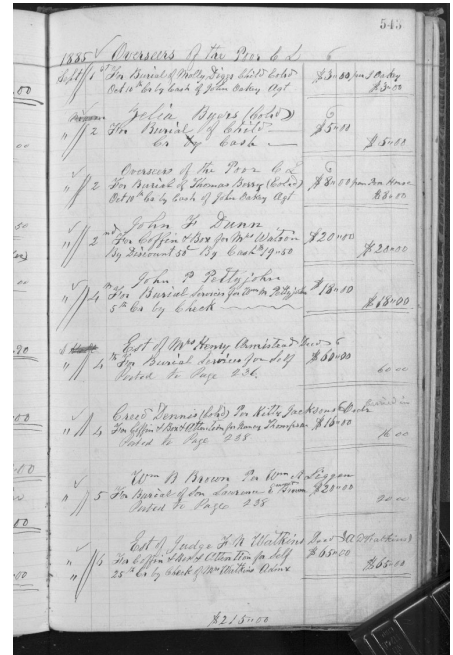 543
1885 Overseers of the Poor C L
Sept 1st For Burial of Molly Diggs Child Cold $3.00 John Oakey
Oct 10th Cr by Cash of John Oakey Agt $3.00
Zelia Byers (Cold)
" 2 For Burial of Child $5.00
Cr by Cash $5.00
Overseers of the Poor C L
" 2 For Burial of Thomas Berry (Cold) $8.00 from Poor House
Oct 10th Cr by Cash of John Oakey Agt $8.00
John F Dunn
" 2nd For Coffin & Box for Mrs Watson $20.00
By Discount 50 By Cash 19.50 $20.00
John P Pettyjohn
" 4th For Burial Services for Wm M Pettyjohn $18.00
5th Cr by Check $18.00
Est of Mrs Henry Armistead Decd
" 4th For Burial Services for Self $60.00
Posted to Page 236 60 00
Creed Dennis (Cold) Per Kitty Jackson
" 4 For Coffin & Box & Attention for Nancy Thompson $16.00
Posted to Page 238 16 00
Wm B Brown Per Wm A Liggon
" 5 For Burial of Son Lawrence E Brown $20.00
Posted to Page 238
Est of Judge F N Watkins Decd (A D Watkins)
" 6 For Coffin & Box & Attention for Self $65.00
" 25th Cr by Check of Mr Watkins Admx $65.00
$215.00